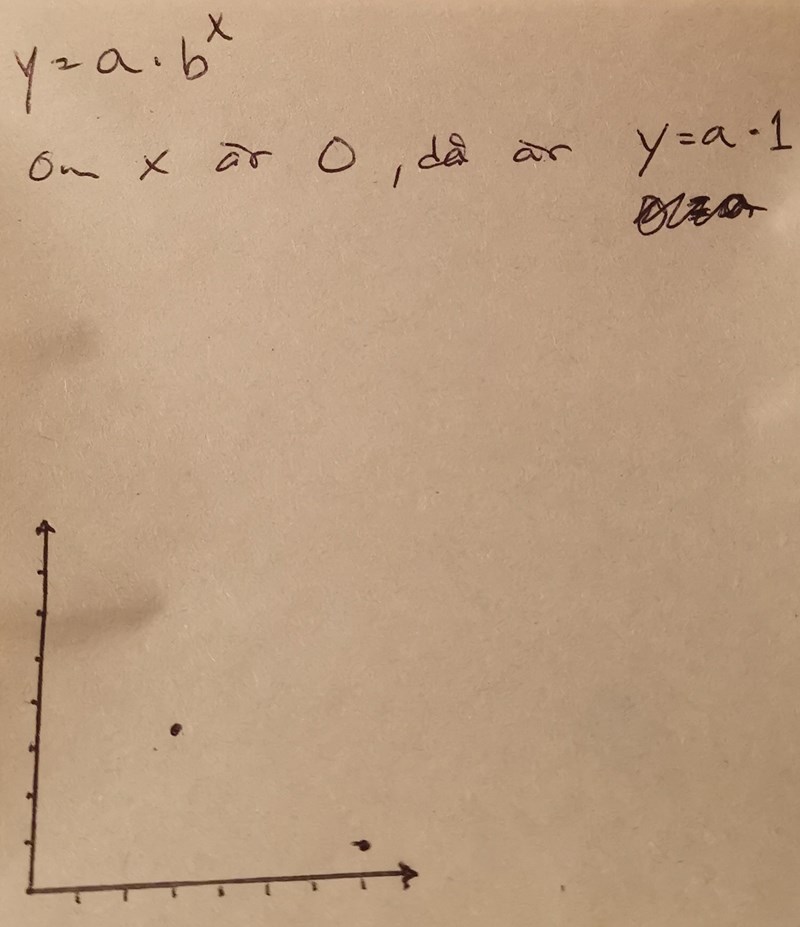 y = a · b^x
Om x är 0, då är y = a · 1